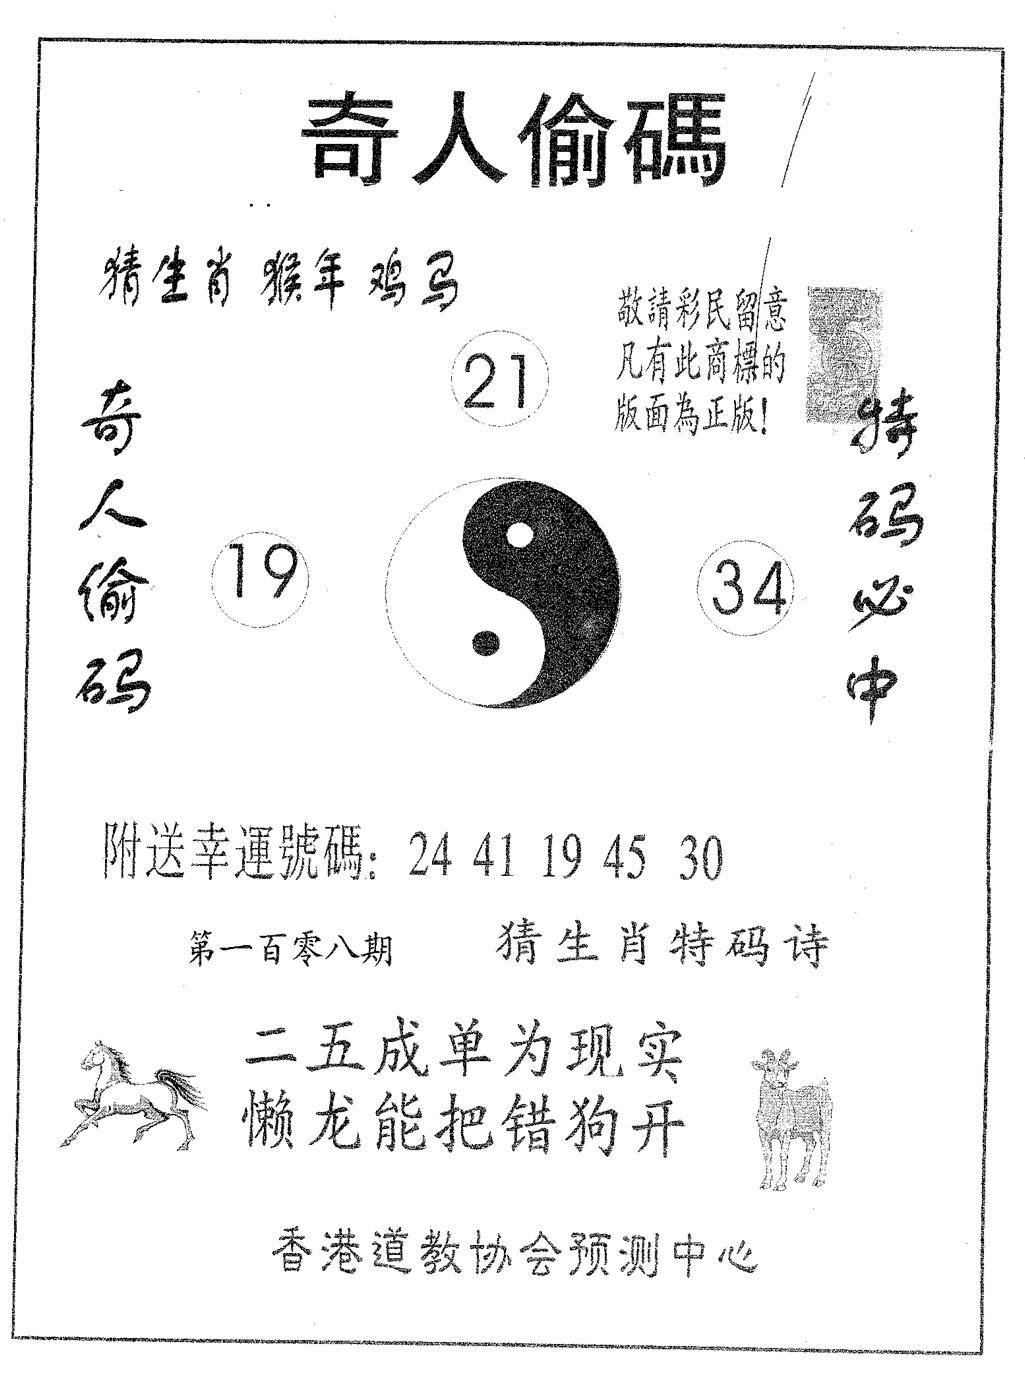 奇人偷碼
猜生肖 猴年鸡马
敬請彩民留意
凡有此商標的
版面為正版!
21
奇人偷码
19
34
特码必中
附送幸運號碼: 24 41 19 45 30
第一百零八期 猜生肖特码诗
二五成单为现实
懒龙能把错狗开
香港道教协会预测中心